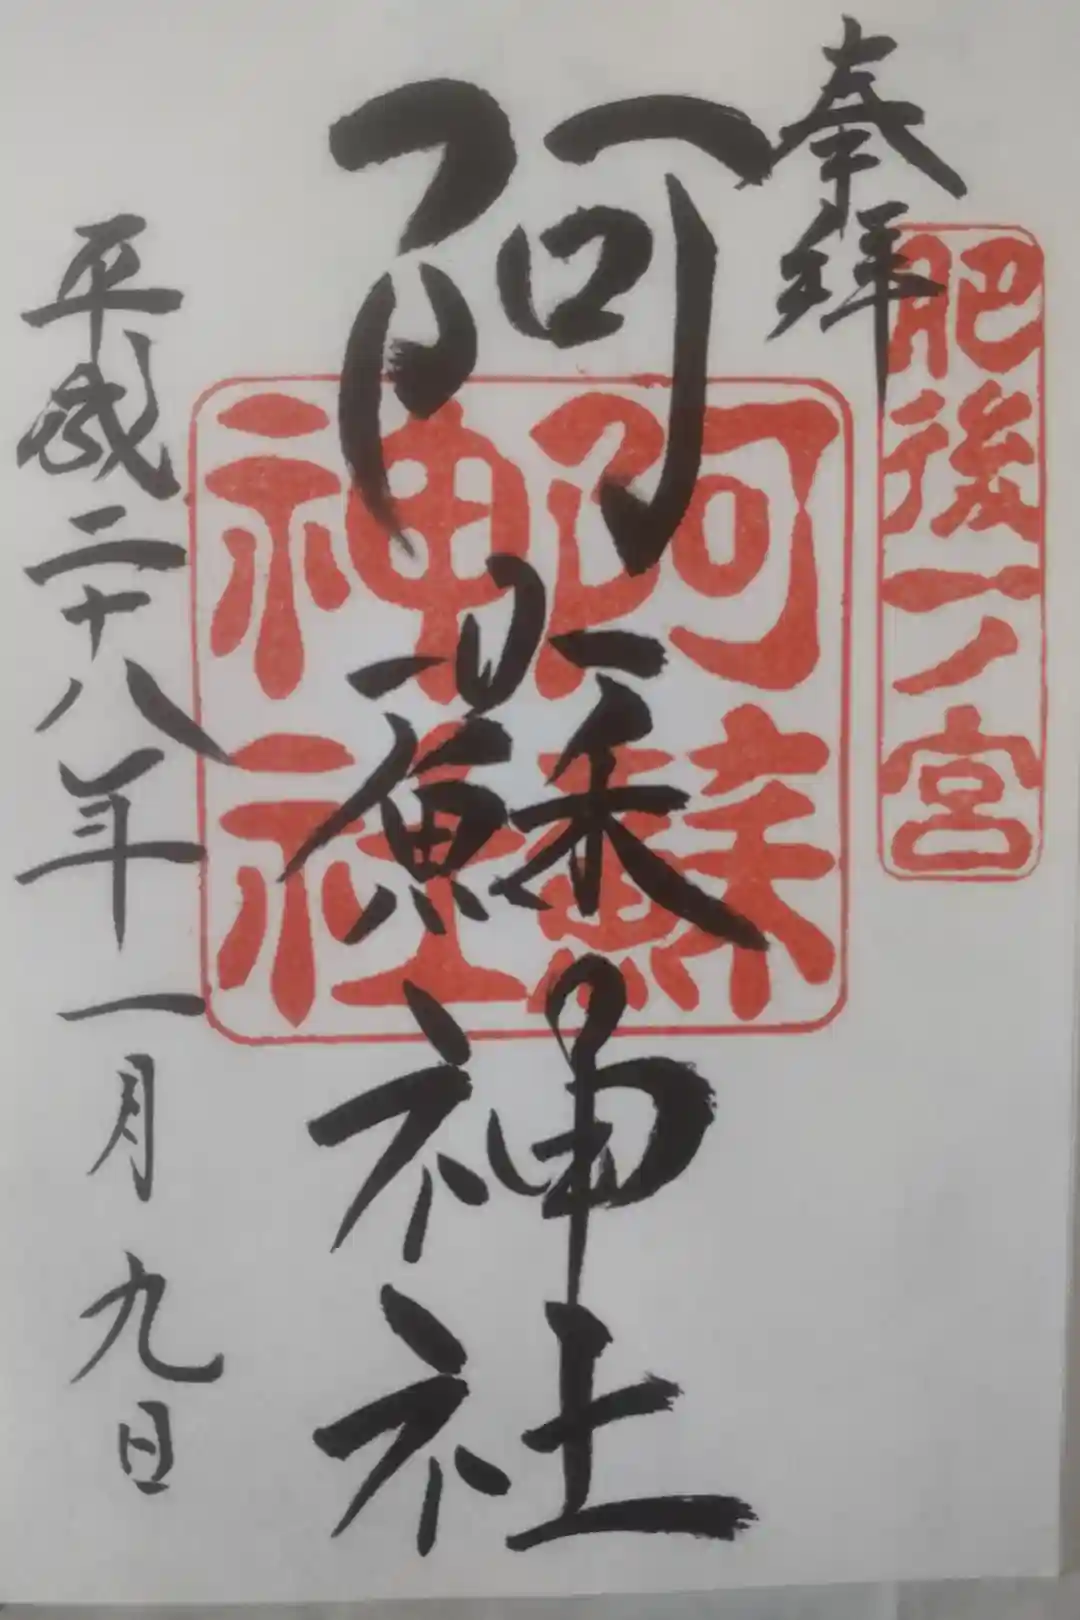 奉拝
肥後一ノ宮
阿蘇神社
阿蘇
神社
平成二十八年一月九日